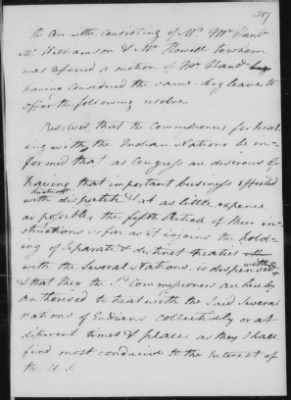 287
The Comttee consisting of Mr. Mr Hand
Mr. Williamson & Mr. Howell to whom
was referred a motion of Mr Hand
having considered the same beg leave to
offer the following resolve.
Resolved, that the Commissioners for treat
ing with the Indian Nations be in
formed that as Congress are desirous of
having that important business effected
with dispatch & at as little expence
as possible, the fifth Article of their in
structions so far as it injoins the hold
ing of separate & distinct treaties
with the Several Nations, is dispensed with
& that they the Sd. Commissioners are hereby
authorised to treat with the Said Several
nations of Indians collectively or at
different times & places as they Shall
find most conducive to the Interest of
the U. S.